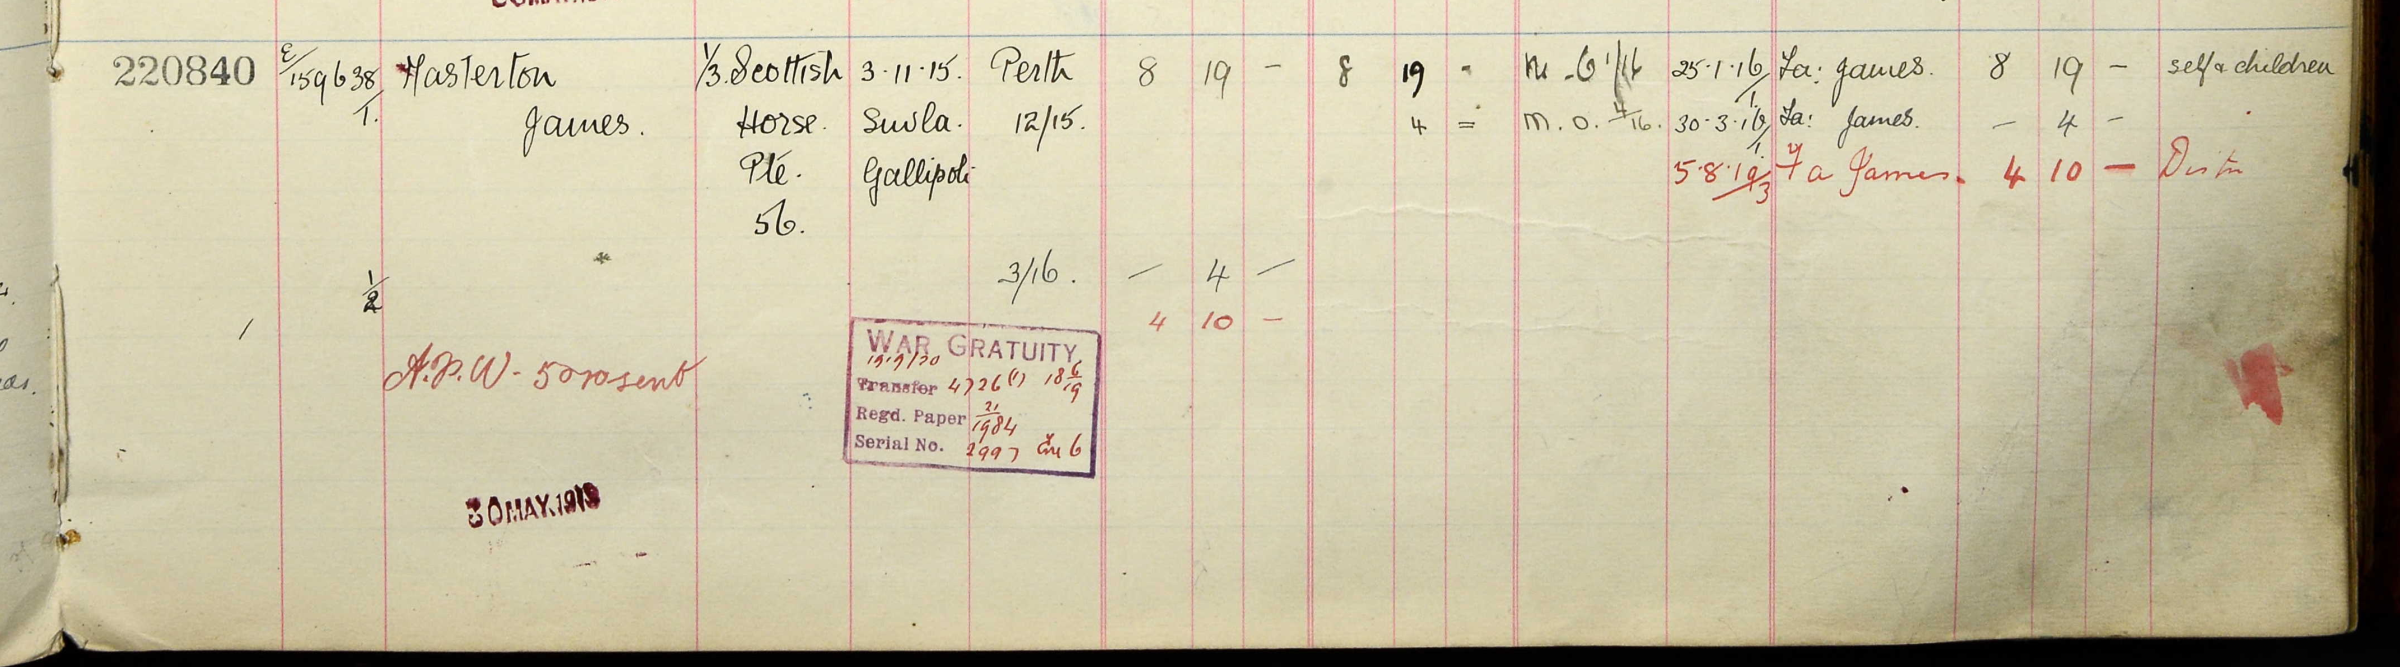 220840 E/159638/1. Masterton 1/3. Scottish 3.11.15. Perth 8 19 - 8 19 - 25.1.16/1 Fa: James. 8 19 - self & children
James. Horse. Suvla. 12/15. 4 = M.O. 4/16. 30.3.16/1 Fa: James. - 4 -
Pte. Gallipoli 5.8.19/3 Fa James. 4 10 -
56.
1/2 3/16. - 4 -
4 10 -
WAR GRATUITY
A.P.W. sent
Transfer 4726(1) 18 6/19
Regd. Paper 21/1984
Serial No. 2997
30 MAY.1919